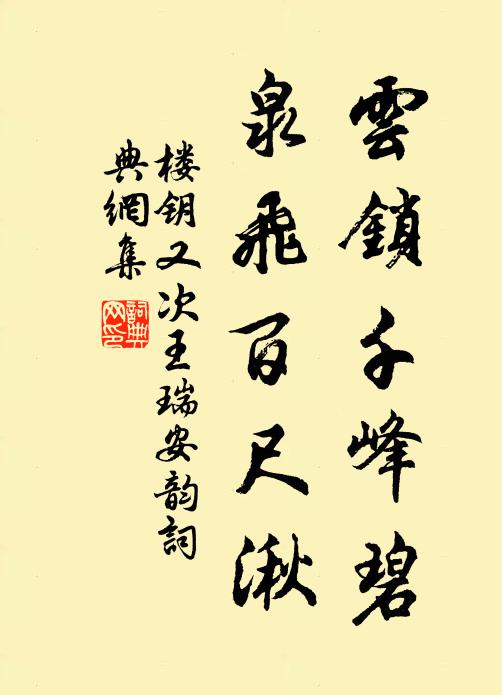 雲鎖千峰碧
泉飛百尺湫
楼钥又次王瑞安韵詞
典網集
詞典
网印